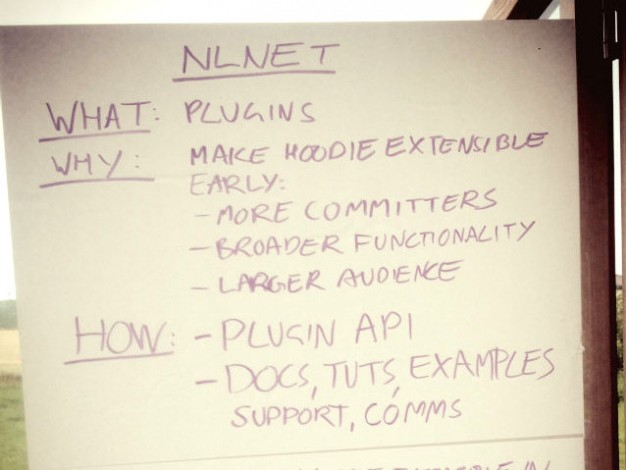 NLNET
WHAT: PLUGINS
WHY: MAKE HOODIE EXTENSIBLE
EARLY:
- MORE COMMITTERS
- BROADER FUNCTIONALITY
- LARGER AUDIENCE
HOW: - PLUGIN API
- DOCS, TUTS, EXAMPLES
SUPPORT, COMMS